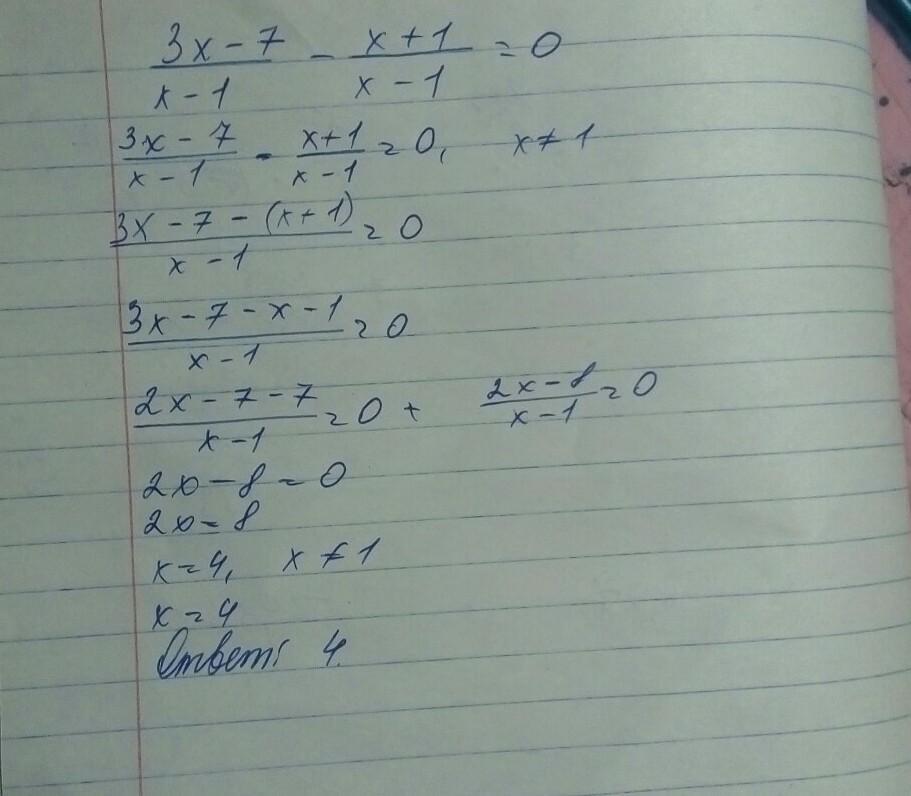 3x - 7 / x - 1 - x + 1 / x - 1 = 0
3x - 7 / x - 1 - x + 1 / x - 1 = 0, x ≠ 1
3x - 7 - (x + 1) / x - 1 = 0
3x - 7 - x - 1 / x - 1 = 0
2x - 7 - 7 / x - 1 = 0 + 2x - 8 / x - 1 = 0
2x - 8 = 0
2x = 8
x = 4, x ≠ 1
x = 4
Ответ: 4.